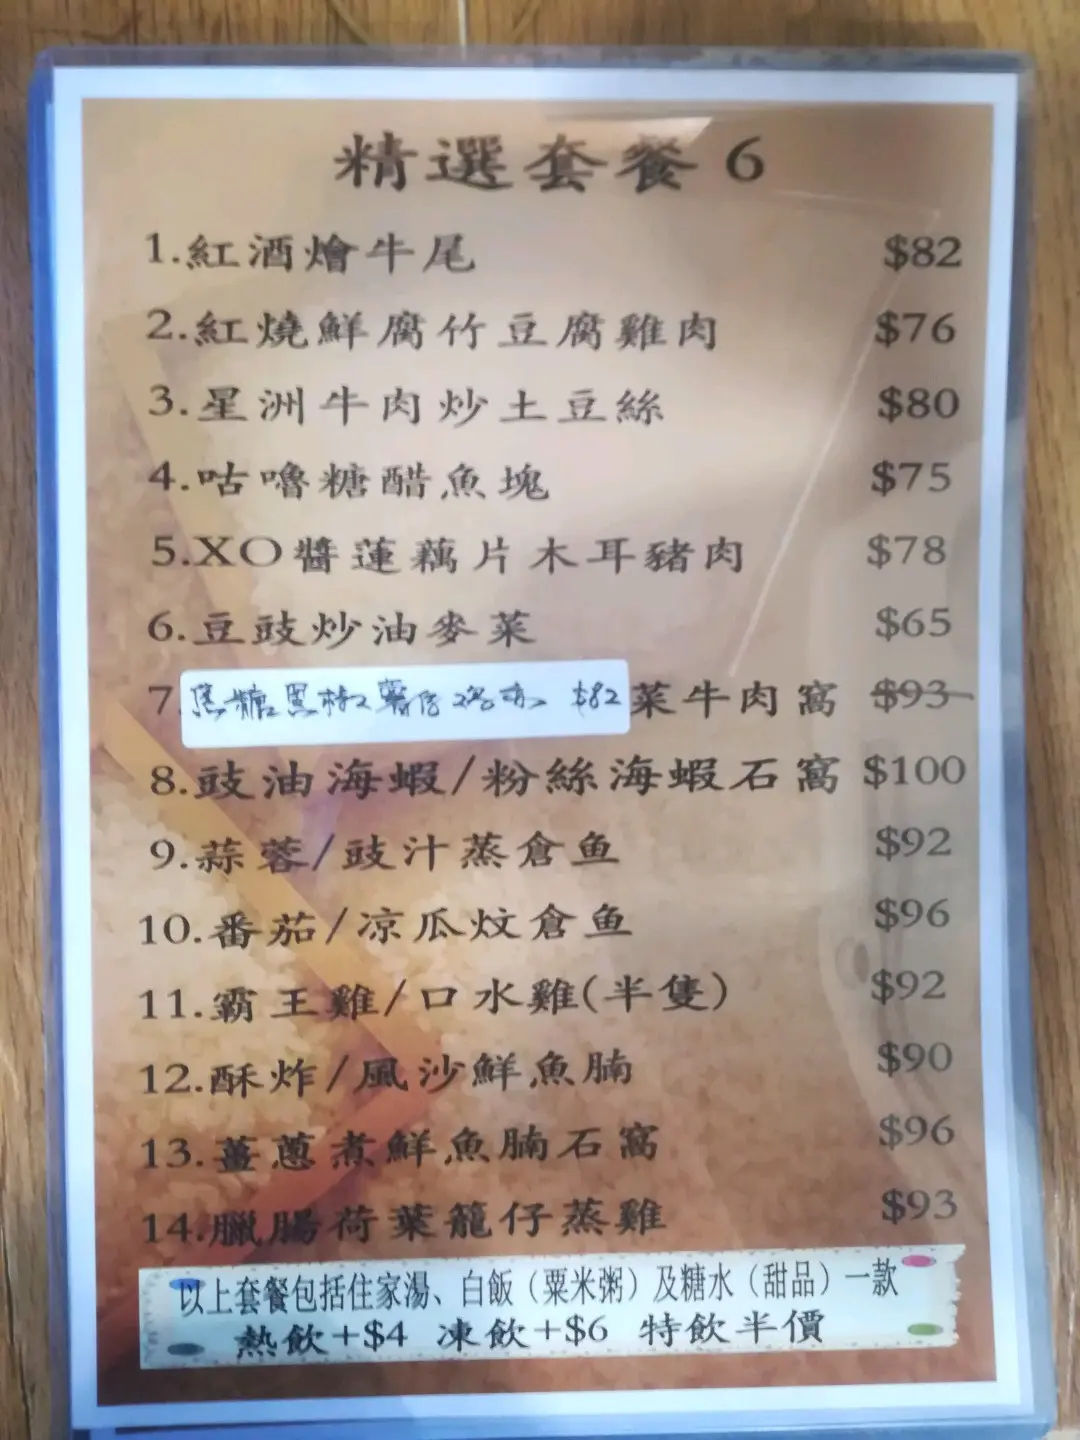 精選套餐 6
1.紅酒燴牛尾 $82
2.紅燒鮮腐竹豆腐雞肉 $76
3.星洲牛肉炒土豆絲 $80
4.咕嚕糖醋魚塊 $75
5.XO醬蓮藕片木耳豬肉 $78
6.豆豉炒油麥菜 $65
7.焦糖黑椒薯仔 $82 菜牛肉窩 $93
8.豉油海蝦/粉絲海蝦石窩 $100
9.蒜蓉/豉汁蒸倉鱼 $92
10.番茄/凉瓜炆倉鱼 $96
11.霸王雞/口水雞(半隻) $92
12.酥炸/風沙鮮魚腩 $90
13.薑蔥煮鮮魚腩石窩 $96
14.臘腸荷葉籠仔蒸雞 $93
以上套餐包括住家湯、白飯（粟米粥）及糖水（甜品）一款
熱飲+$4 凍飲+$6 特飲半價